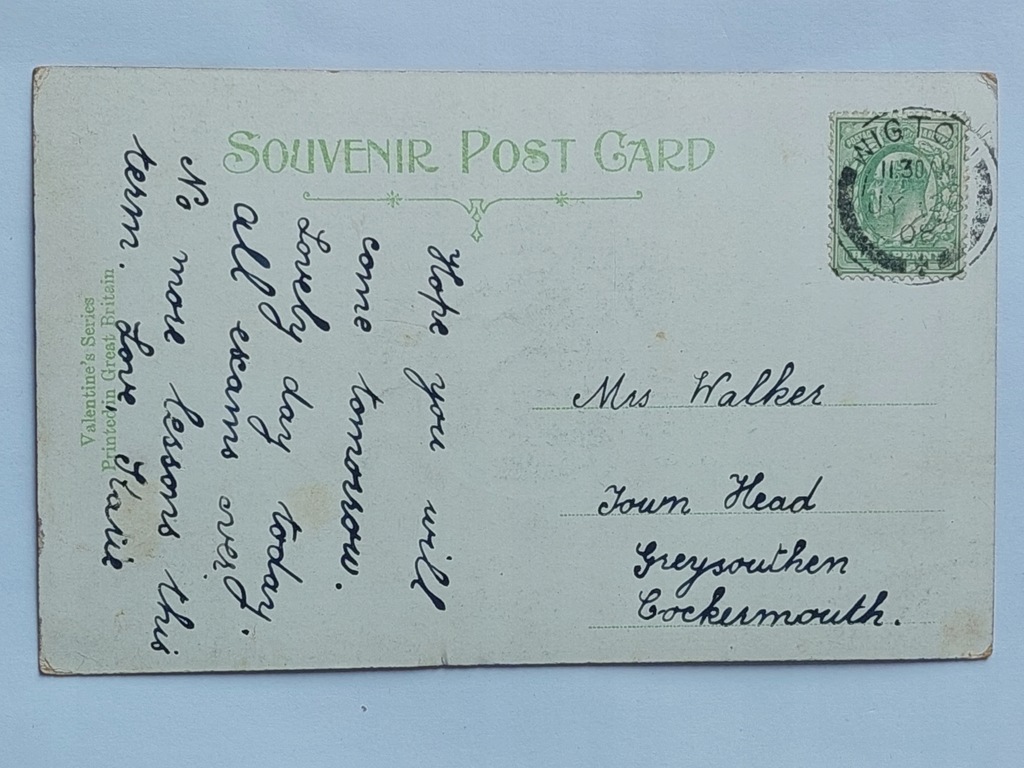 SOUVENIR POST CARD
WIGTON
11.30
JY
08
Hope you will
come tomorrow.
Lovely day today.
all exams over.
No more lessons this
term. Love,
Mrs Walker
Town Head
Greysouthen
Cockermouth.
Valentine's Series
Printed in Great Britain